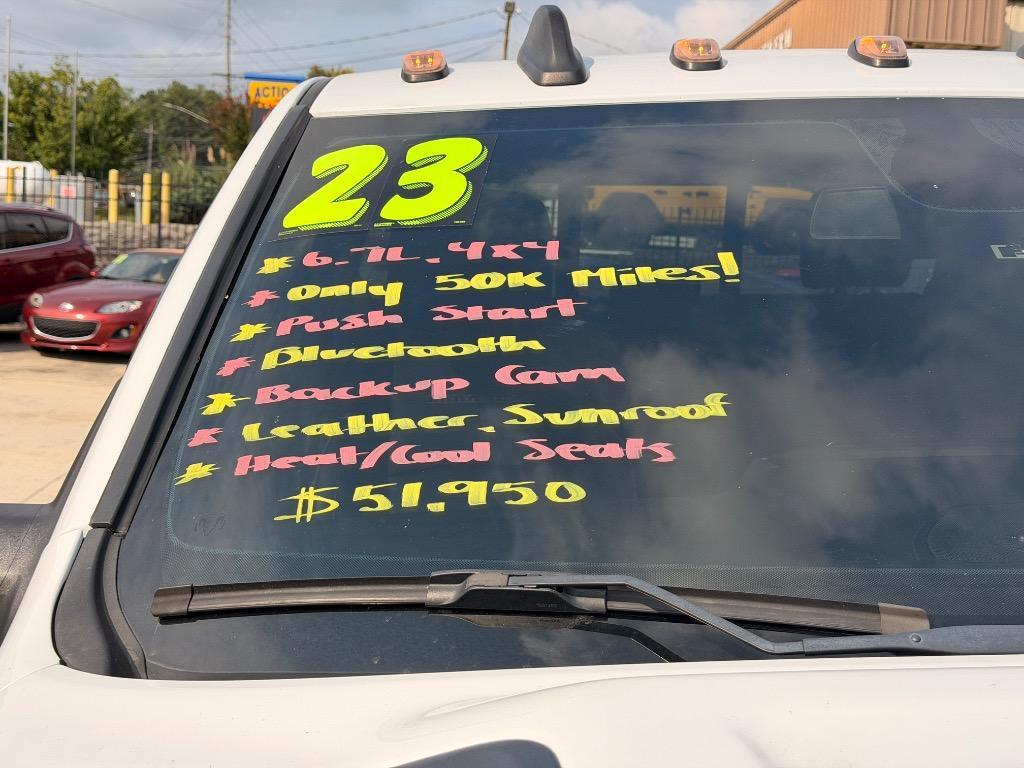 ACTION
23
* 6.7L, 4x4
* Only 50K Miles!
* Push Start
* Bluetooth
* Backup Cam
* Leather, Sunroof
* Heat/Cool Seats
$51,950